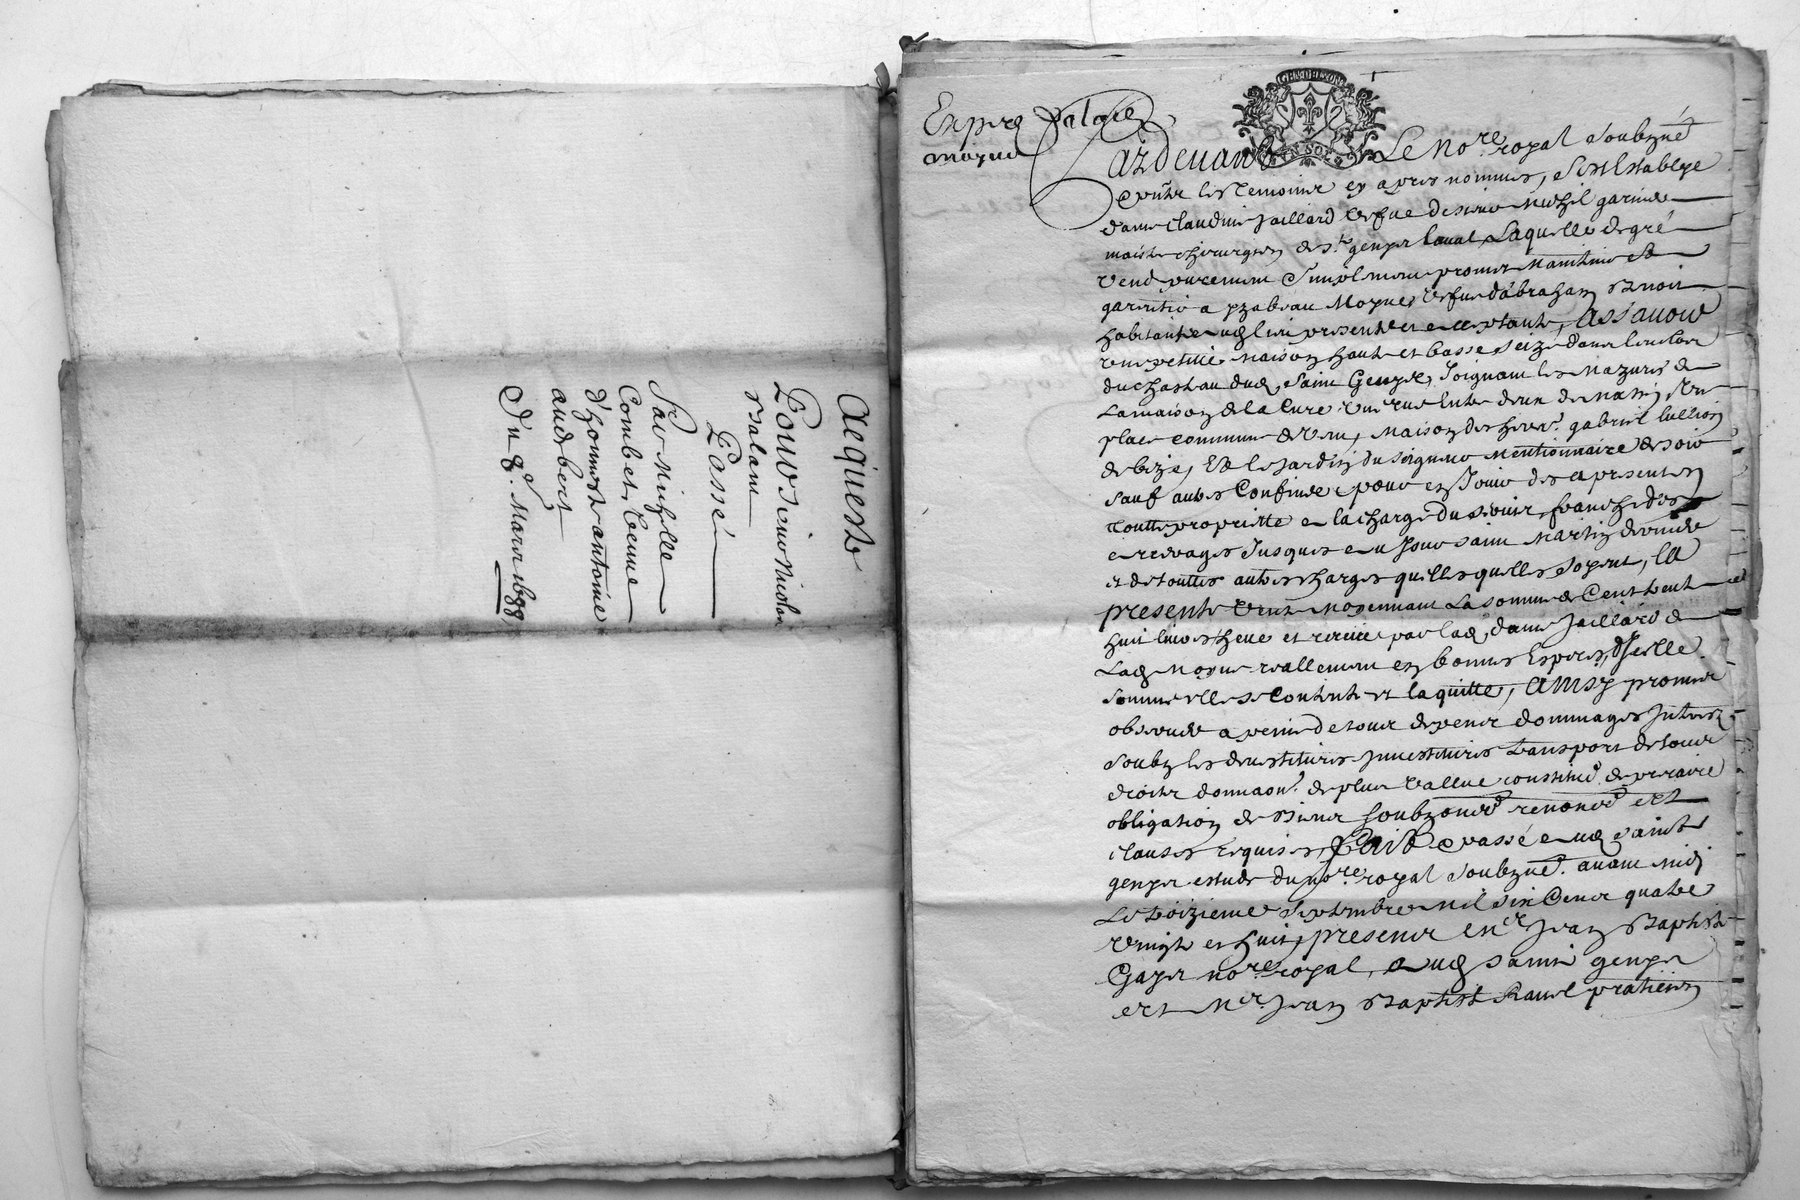 Acqueste
Pour sieur Nicolas
Balani
Passé
Par Michelle
Combet, femme
d'honneste antoine
audebert
Du 8e. Mars 1688
GEN DE LYON
Expedié
moyne
Pardevant Le No.re royal Soubzné
et pnts les temoins cy apres nommés, s'est establye
dame Claudine Jaillard vefve de sieur Michel garnier
maistre chirurgien de St. genys laval, Laquelle de gré
vend purement simplement promet Maintenir et
garentir a yzabeau Moyne, vefve d'abraham Benoit
habitante aud lieu presente et acceptante, Assavoir
une petitte Maison haute et basse size dans l'enclos
du chasteau dud. Saint Genys, Joignant les Mazures de
La maison de la Cure rue entre deux de Matin, Une
place commune de vent, Maison des heers. gabriel
de bize, Et le Jardin du seigneur Mentionnaire de soir
sauf autres Confins, pour en Jouir des apresent en
toutte proprietté a la charge du servis, franche des
arrerages Jusques au Jour saint Martin dernier
et de touttes autres charges quelles quelles soyent, La
presente vente Moyennant La somme de Cent trente
huit livres heue et receue par lad. dame Jaillard de
Lad. Moyne reallement en bonnes Especes, d'Icelle
somme elle se Contente et la quitte, Ainsy promis
observer a peine de tous despens dommages Interests
soubz les devestitures Investitures transport de tous
droits donnaon. de plus vallue constitu.on de precaire
obligation de biens soubzon. renon.on et
clauses requises, Fait et passé aud Saint
genys estude du no.re royal soubzné. avant midi
Le treizieme Septembre Mil six Cents quatre
vingts et huit, presents Me. Jean Baptiste
Gayet no.re royal, aud saint genys
et Me. Jean Baptiste Ravel praticien